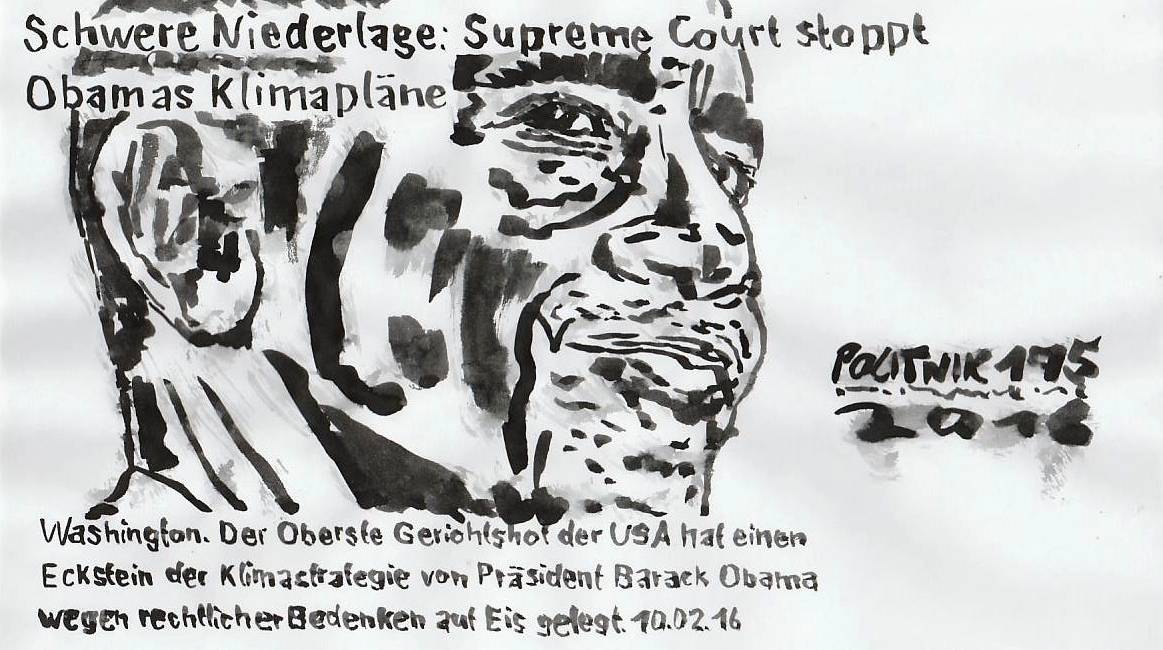 Schwere Niederlage: Supreme Court stoppt
Obamas Klimapläne
POLITNIK 175
2016
Washington. Der Oberste Gerichtshof der USA hat einen
Eckstein der Klimastrategie von Präsident Barack Obama
wegen rechtlicher Bedenken auf Eis gelegt. 10.02.16